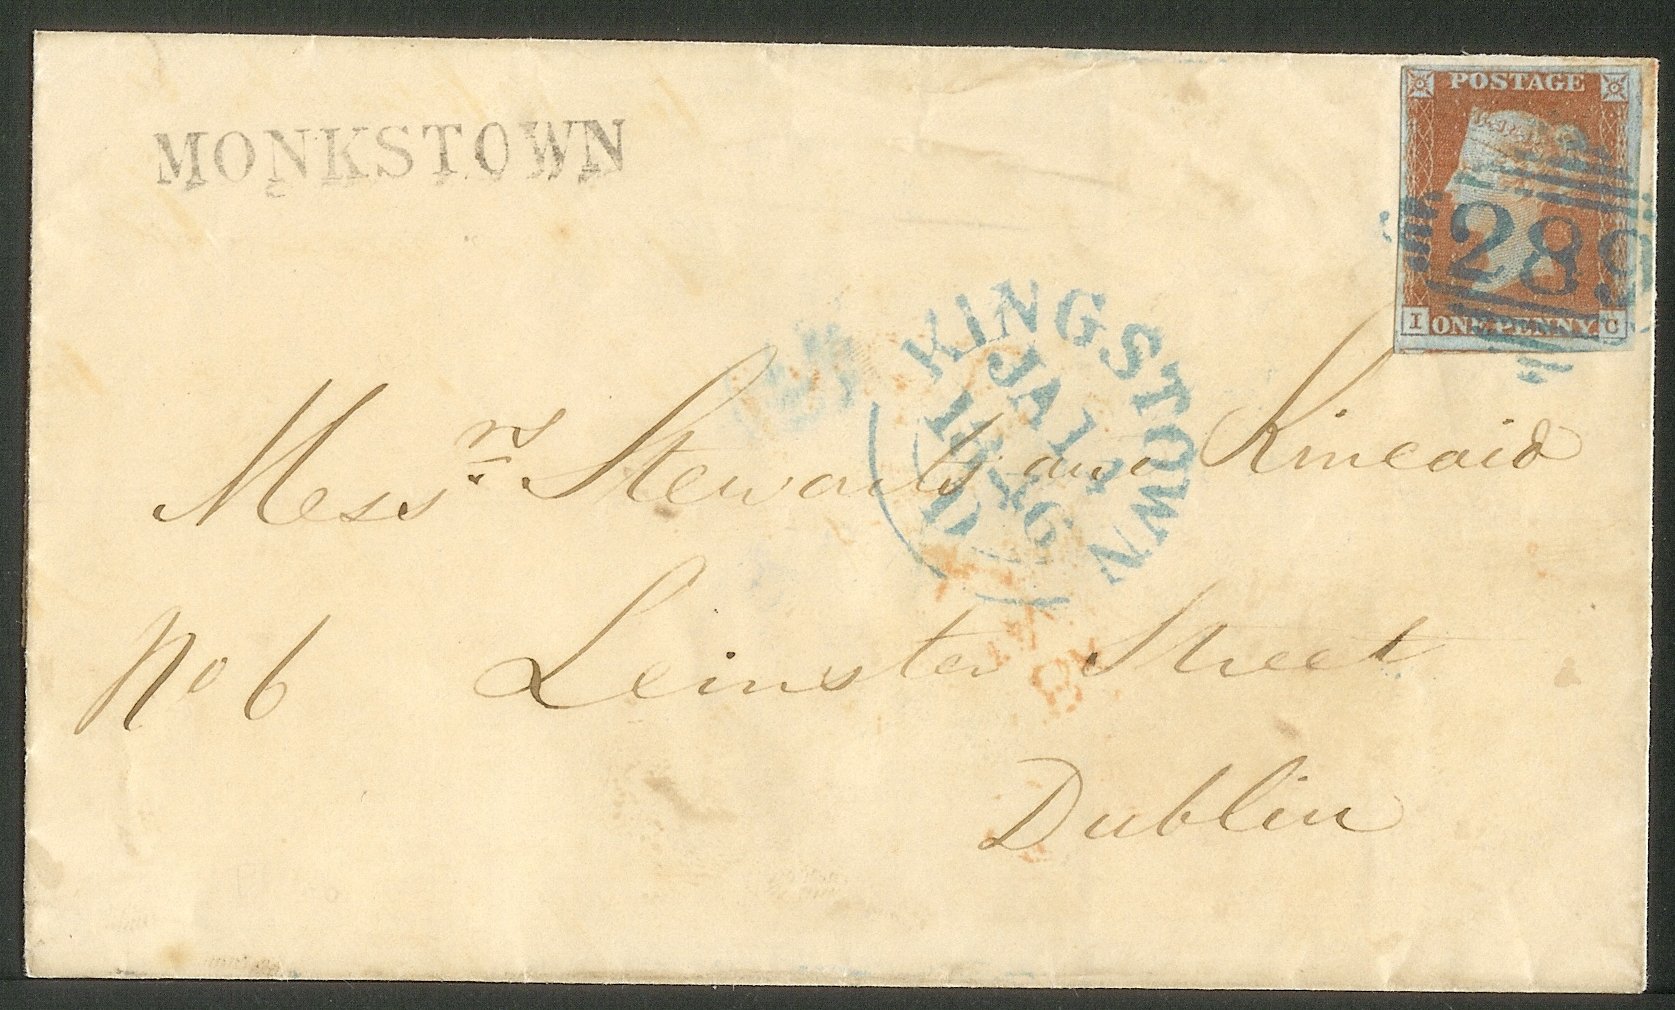 MONKSTOWN
POSTAGE
289
I ONE PENNY. C
KINGSTOWN
JA
1846
Messrs. Stewarts and Kincaid
No 6 Leinster Street
Dublin